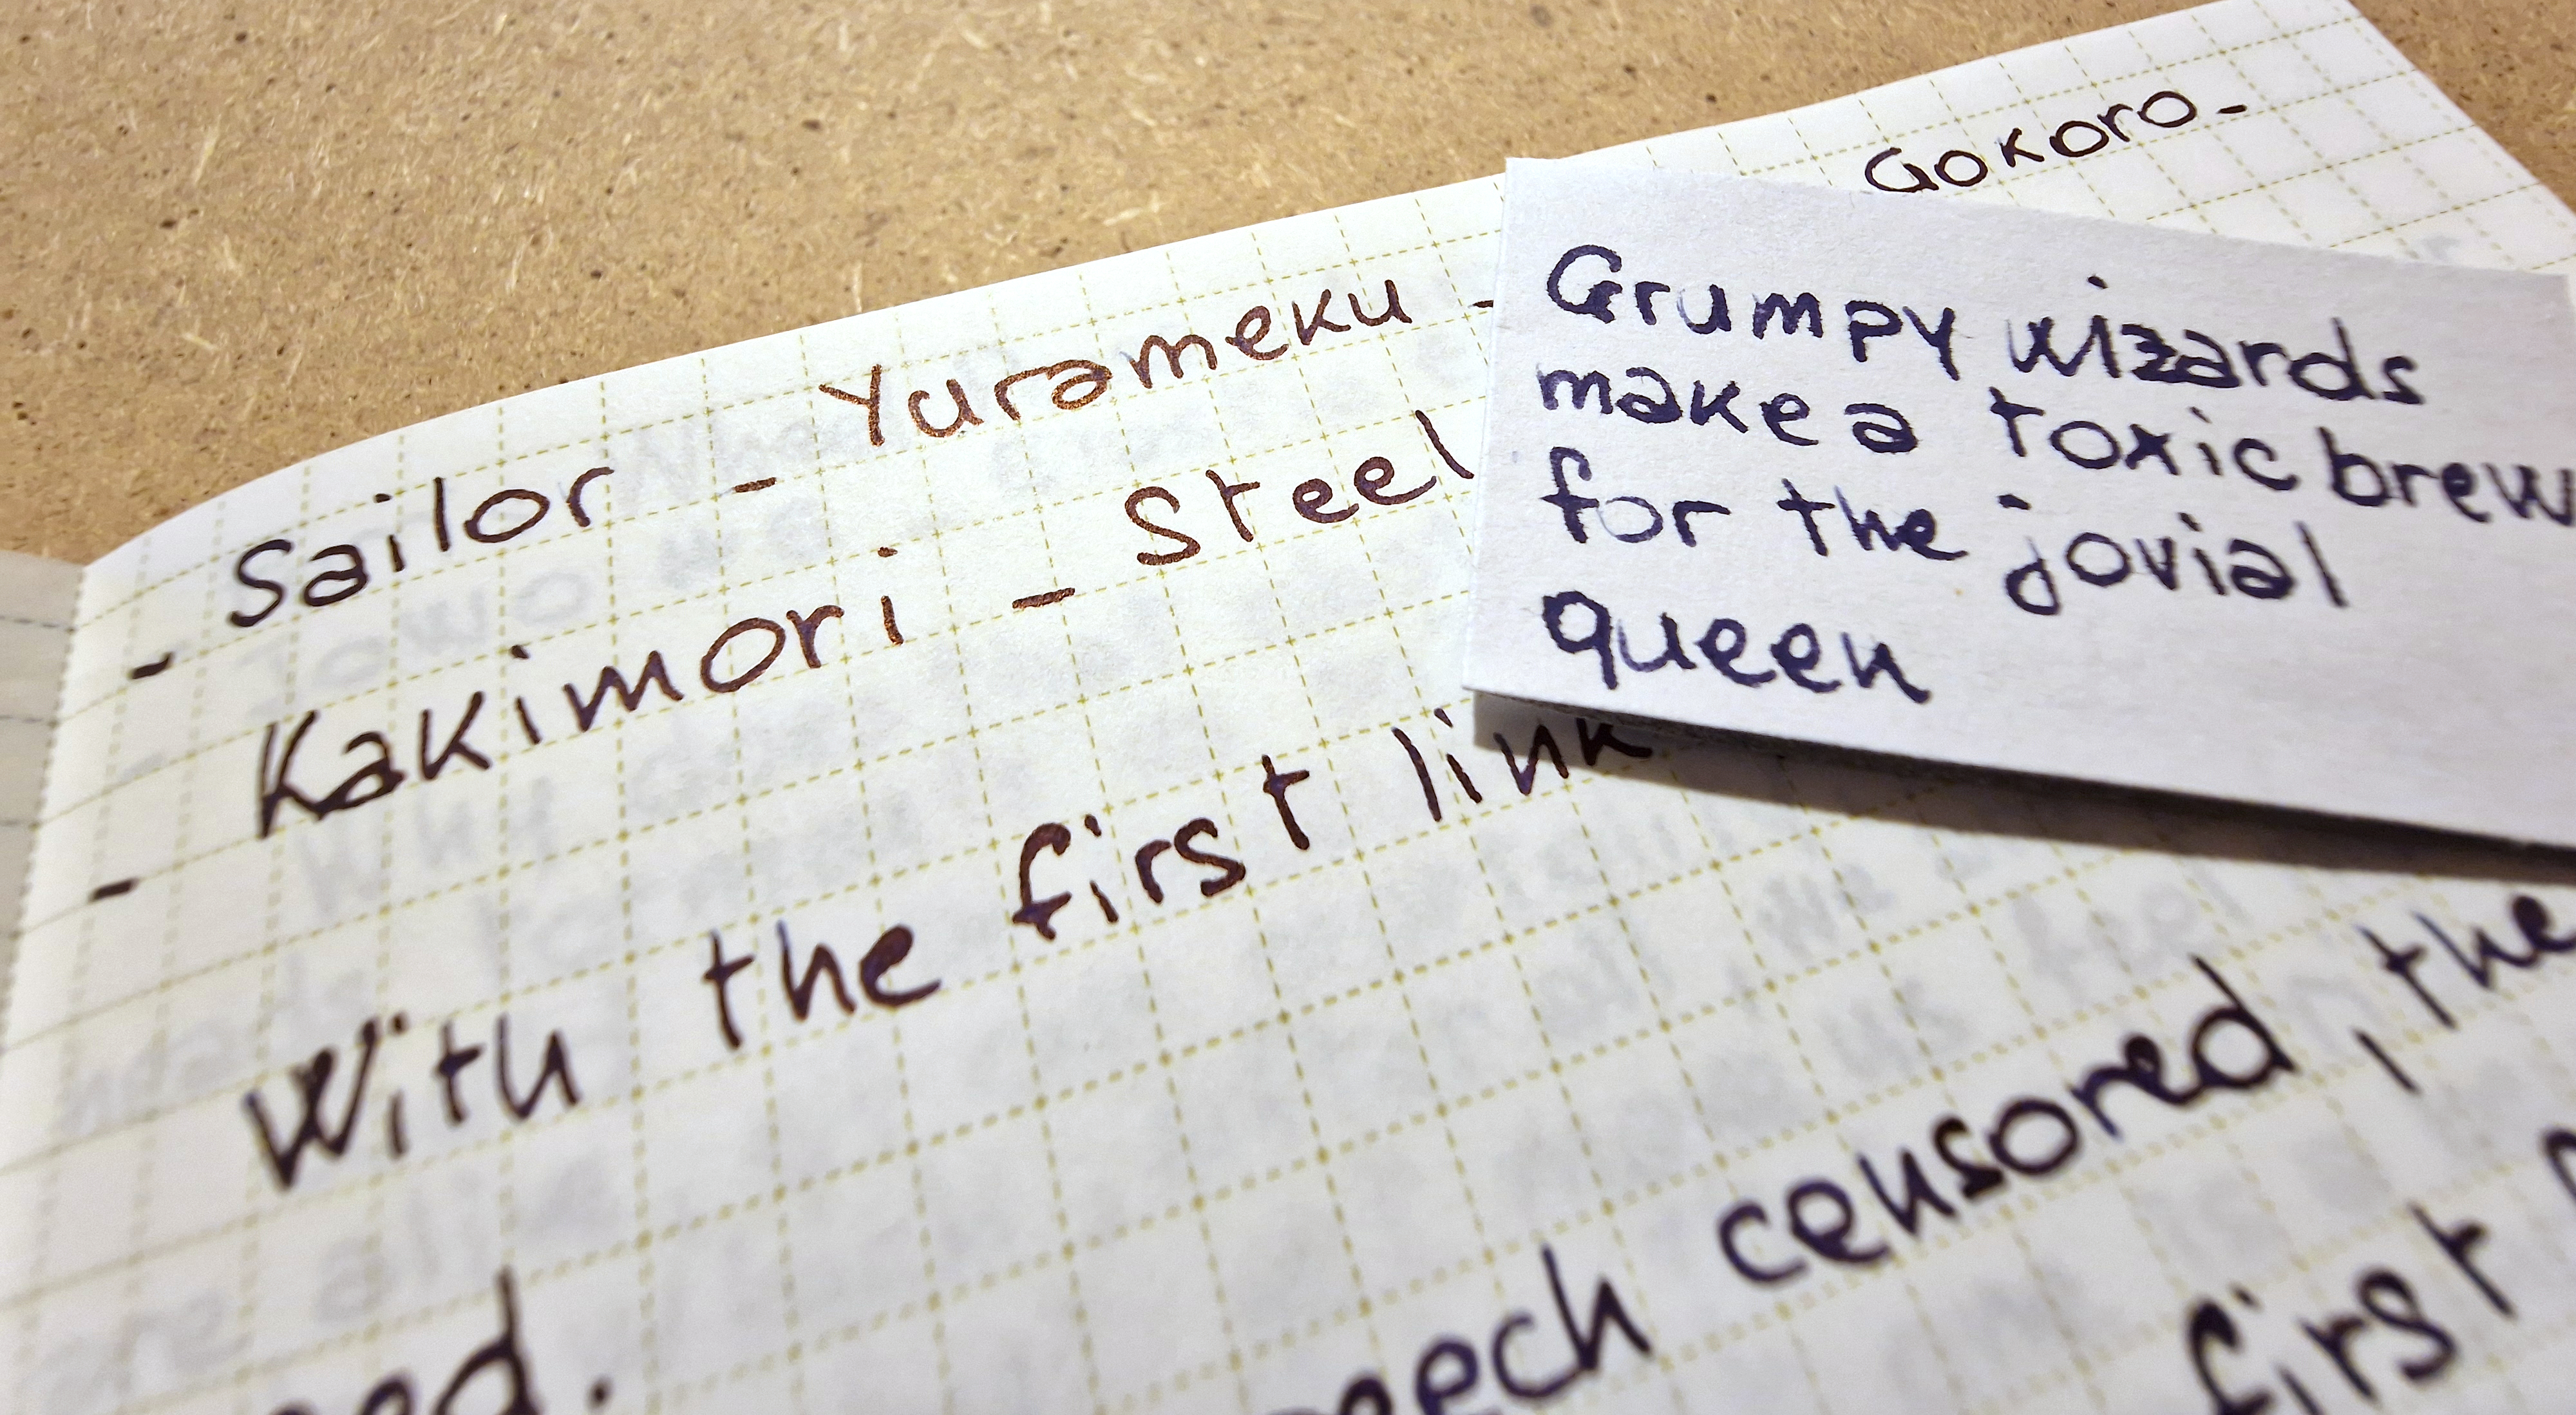 - Sailor - Yurameku - Gokoro -
- Kakimori - Steel
With the first link
censored, the
first
Grumpy wizards
make a toxic brew
for the jovial
queen